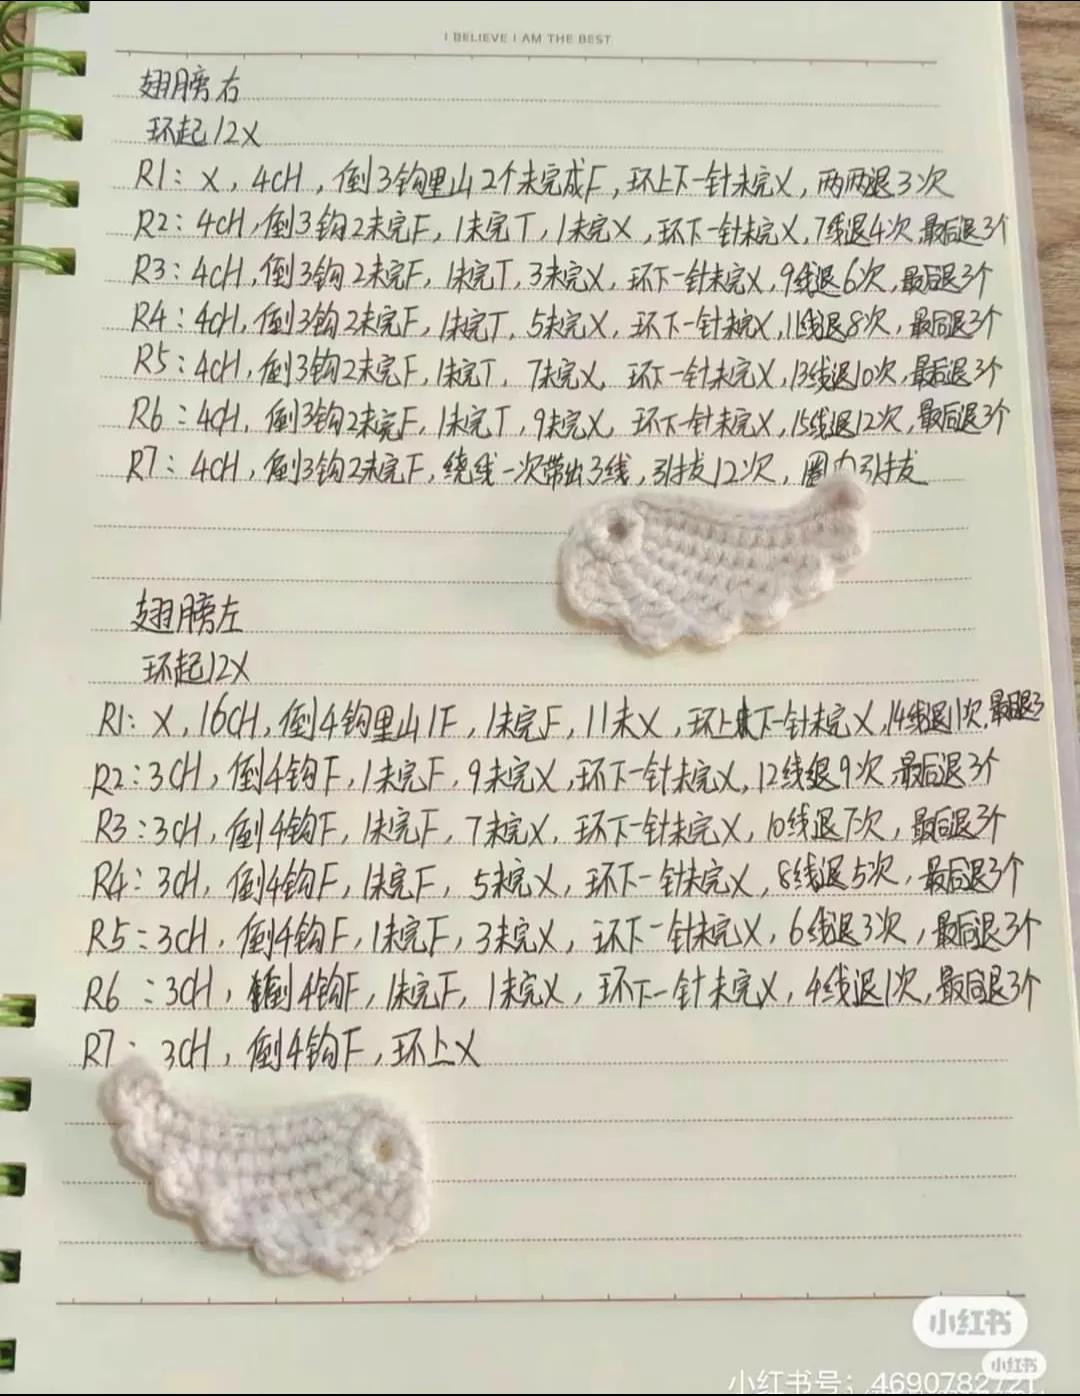 I BELIEVE I AM THE BEST
翅膀右
环起12X
R1: X, 4CH, 倒3钩里山2个未完成F, 环上下一针未完X, 两两退3次
R2: 4CH, 倒3钩2未完F, 1未完T, 1未完X, 环下一针未完X, 7线退4次, 最后退3个
R3: 4CH, 倒3钩2未完F, 1未完T, 3未完X, 环下一针未完X, 9线退6次, 最后退3个
R4: 4CH, 倒3钩2未完F, 1未完T, 5未完X, 环下一针未完X, 11线退8次, 最后退3个
R5: 4CH, 倒3钩2未完F, 1未完T, 7未完X, 环下一针未完X, 13线退10次, 最后退3个
R6: 4CH, 倒3钩2未完F, 1未完T, 9未完X, 环下一针未完X, 15线退12次, 最后退3个
R7: 4CH, 倒3钩2未完F, 绕线一次带出3线, 引拔12次, 圈内引拔
翅膀左
环起12X
R1: X, 16CH, 倒4钩里山1F, 1未完F, 11未X, 环上下一针未完X, 14线退11次, 最后退3
R2: 3CH, 倒4钩F, 1未完F, 9未完X, 环下一针未完X, 12线退9次, 最后退3个
R3: 3CH, 倒4钩F, 1未完F, 7未完X, 环下一针未完X, 10线退7次, 最后退3个
R4: 3CH, 倒4钩F, 1未完F, 5未完X, 环下一针未完X, 8线退5次, 最后退3个
R5: 3CH, 倒4钩F, 1未完F, 3未完X, 环下一针未完X, 6线退3次, 最后退3个
R6: 3CH, 倒4钩F, 1未完F, 1未完X, 环下一针未完X, 4线退1次, 最后退3个
R7: 3CH, 倒4钩F, 环上X
小红书
小红书
小红书号: 4690782721